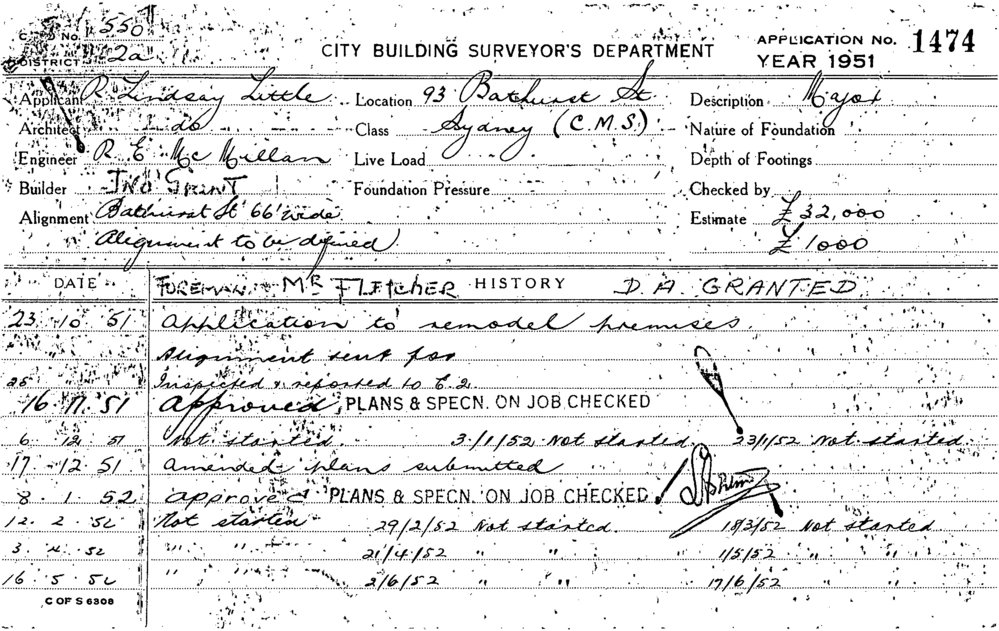 C No. 550
DISTRICT 2a
CITY BUILDING SURVEYOR'S DEPARTMENT
APPLICATION No. 1474
YEAR 1951
Applicant R Lindsay Little Location 93 Bathurst St Description Major
Architect do Class Sydney (C.M.S.) Nature of Foundation
Engineer R E McMillan Live Load Depth of Footings
Builder JNO GRANT Foundation Pressure Checked by
Alignment Bathurst St 66' wide Estimate £32,000
Alignment to be defined £1000
DATE FOREMAN MR FLETCHER HISTORY D A GRANTED
23 10 51 Application to remodel premises
Alignment sent for
25 Inspected & reported to E.2
16 11 51 Approved PLANS & SPECN. ON JOB CHECKED
6 12 51 Not started. 3/1/52 Not started. 23/1/52 Not started.
17 12 51 Amended plans submitted
8 1 52 Approved PLANS & SPECN. ON JOB CHECKED
12 2 52 Not started 29/2/52 Not started 18/3/52 Not started
3 4 52 " " 21/4/52 " " 1/5/52 " "
16 5 52 " " 2/6/52 " " 17/6/52 " "
C OF S 6308